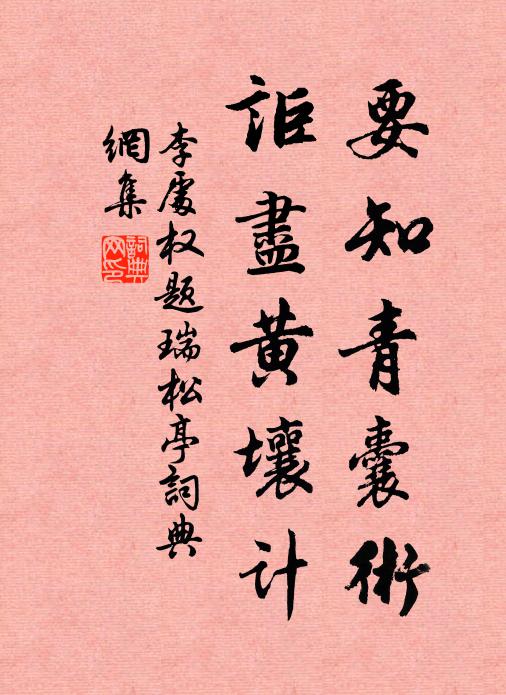 要知青囊術
詎盡黄壤計
李處权题瑞松亭詞典
網集
詞典网印